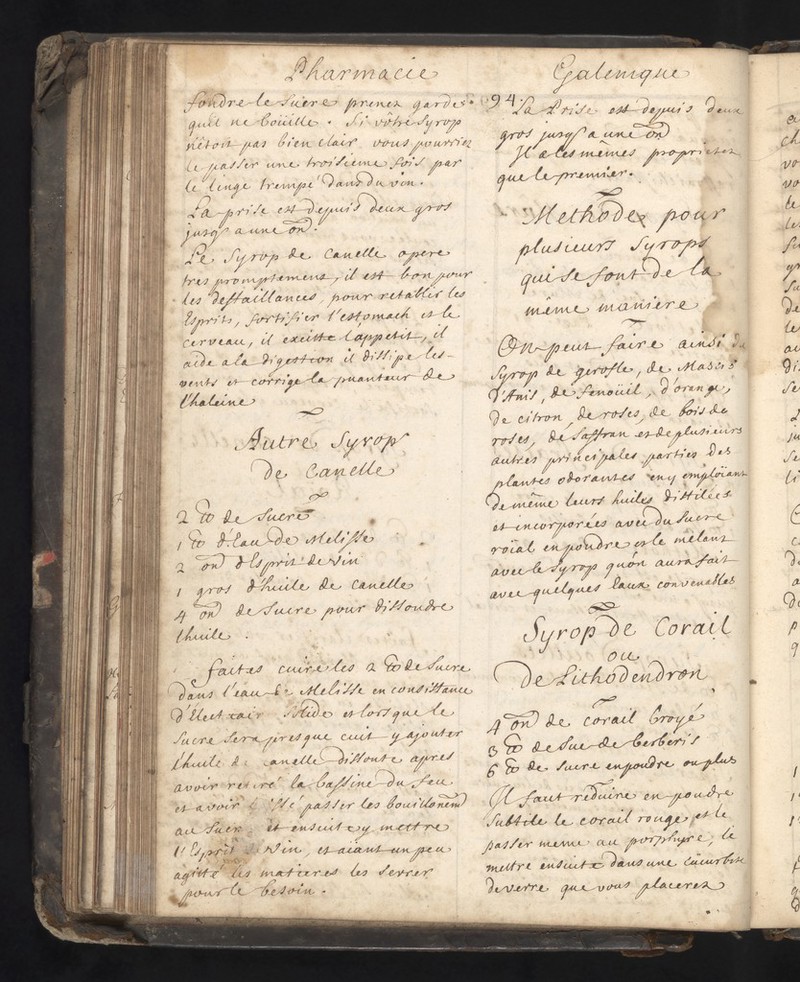 Pharmacie
fondre le sucre prenez garde
quil ne boüille. Si vôtre Syrop
n'étoit pas bien clair vous pourriez
le passer une troisieme fois par
le linge trempé dans du vin.
La prise est depuis deux gros
jusqu'a une on.
Le Syrop de Canelle opere
tres promptement, il est bon pour
les deffaillances, pour retablir les
Esprits, fortifier l'estomach et le
cerveau, il excitte l'appetit, il
aide a la digestion il dissipe les
vents et corrige la puanteur de
l'haleine
Autre Syrop
De Canelle
2 lb de sucre
1 lb d'Eau De Melisse
2 on d'Esprit de vin
1 gros d'huile de Canelle
4 on de Sucre pour dissoudre
l'huile.
faites cuire les 2 lb de Sucre
dans l'eau de Melisse en consistance
d'Electuair solide et lorsque le
Sucre sera presque cuit y ajouter
l'huile de canelle dissoute apres
avoir retiré la bassine du feu
et avoir passer les bouillonemt
au Sucr et ensuite y mettre
l'Esprit vin, et aïant un peu
agitté les matieres les Serrer
pour le besoin.
Galenique
94.
La Prise est depuis deux
gros jusqu'a une on
Il a les mêmes proprietez
que le premier.
Methode pour
plusieurs Syrops
qui se font de la
même maniere
On peut faire ainsi
Syrop de girofle, de Massis
D'Anis, de fenoüil, d'orange,
De citron, de roses, de bois de
roses, de Saffran et de plusieurs
autres principales parties des
plantes odorantes en y emploïant
De même leurs huiles distilées
et incorporées avec du Sucre
roïal en poudre et le mêlant
avec le Syrop quón aura fait
avec quelques Eaux convenables
Syrop De Corail
ou
De Lithodendron
4 on de corail broyé
3 lb de Suc de berberis
6 lb de Sucre en poudre ou plus
Il faut reduire en poudre
Subtile le corail rouge, et le
passer meme au porphyre, le
mettre ensuite dans une cucurbite
de verre que vous placerez